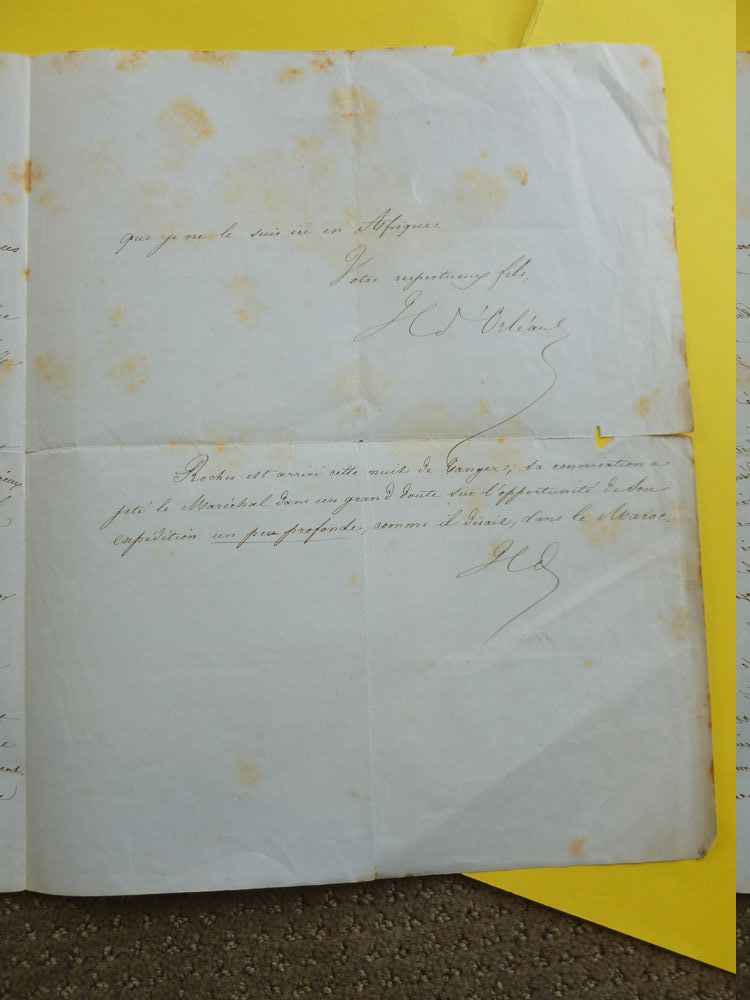 que je ne le suis ici en Afrique.
Votre respectueux fils,
H d'Orléans
Roches est arrivé cette nuit de Tanger; sa conversation a
jeté le Maréchal dans un grand doute sur l'opportunité de son
expédition un peu profonde, comme il disait, dans le Maroc.
HO